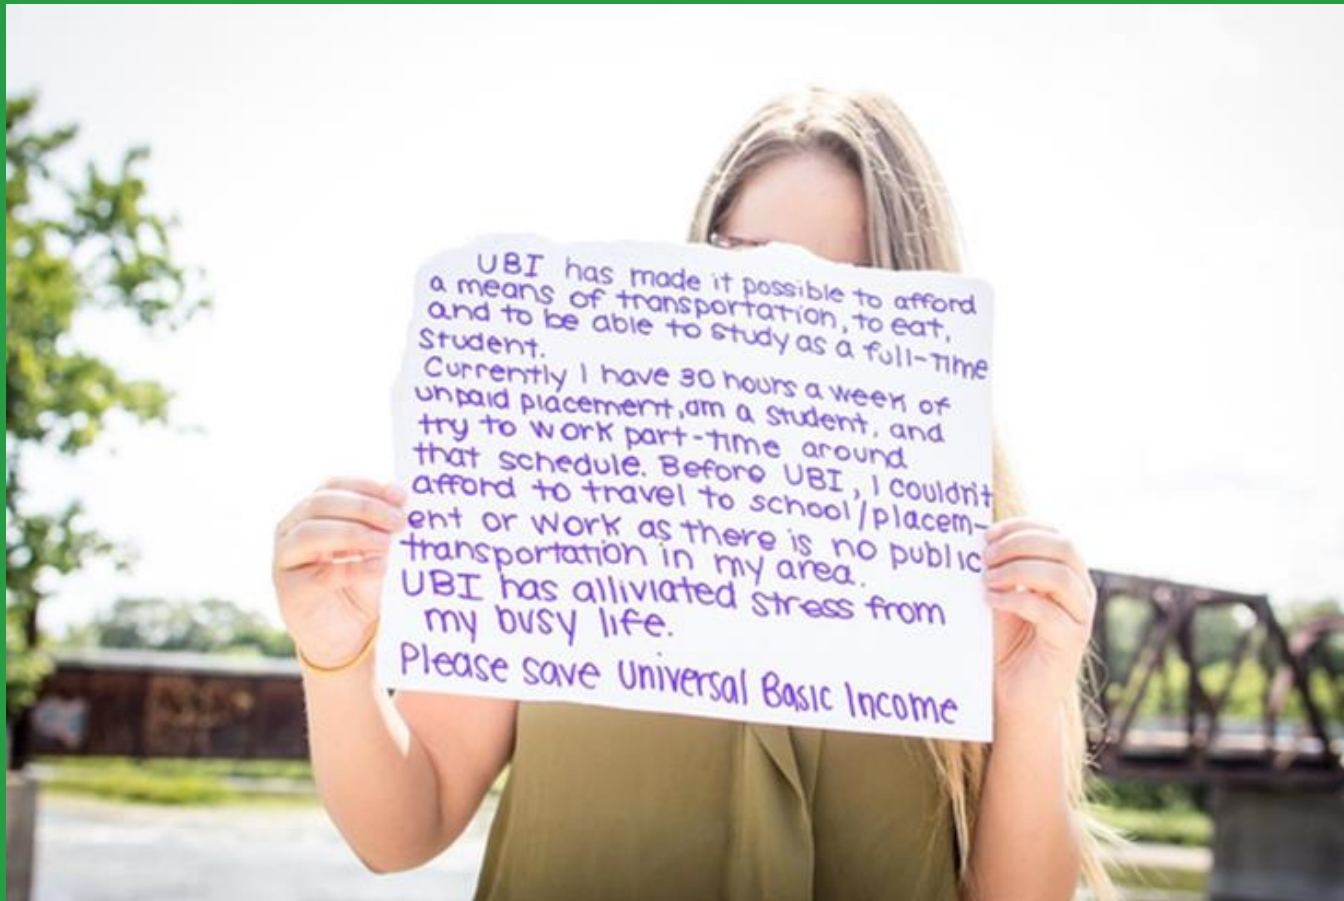 UBI has made it possible to afford
a means of transportation, to eat,
and to be able to study as a full-time
student.
Currently I have 30 hours a week of
unpaid placement, am a student, and
try to work part-time around
that schedule. Before UBI, I couldn't
afford to travel to school/placem-
ent or work as there is no public
transportation in my area.
UBI has alliviated stress from
my busy life.
Please save Universal Basic Income